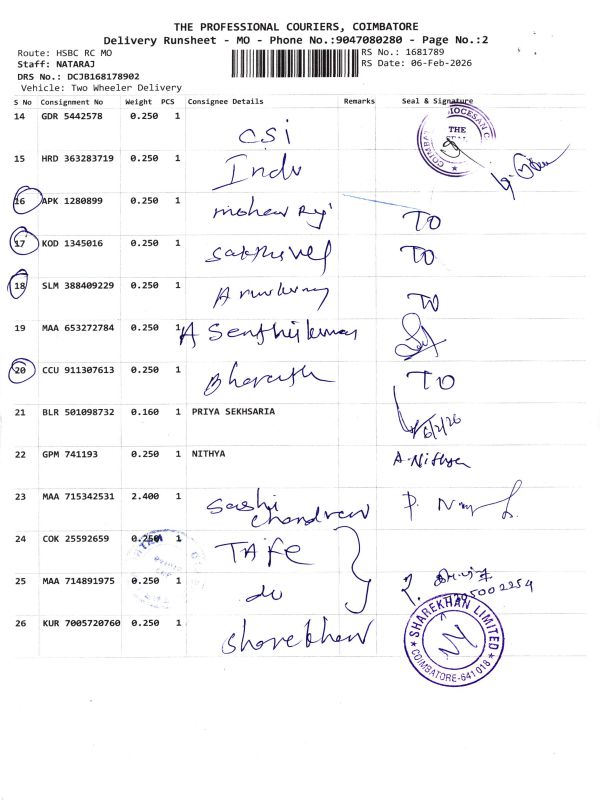 THE PROFESSIONAL COURIERS, COIMBATORE
Delivery Runsheet - MO - Phone No.:9047080280 - Page No.:2
Route: HSBC RC MO
RS No.: 1681789
Staff: NATARAJ
RS Date: 06-Feb-2026
DRS No.: DCJB168178902
Vehicle: Two Wheeler Delivery
S No Consignment No Weight PCS Consignee Details Remarks Seal & Signature
14 GDR 5442578 0.250 1 CSi
15 HRD 363283719 0.250 1 Indu
16 APK 1280899 0.250 1 TO
17 KOD 1345016 0.250 1 Sakthivel TO
18 SLM 388409229 0.250 1 TO
19 MAA 653272784 0.250 1 A Senthilkumar
20 CCU 911307613 0.250 1 Bharath TO
21 BLR 501098732 0.160 1 PRIYA SEKHSARIA 6/2/26
22 GPM 741193 0.250 1 NITHYA A.Nithya
23 MAA 715342531 2.400 1 Sashi Chandran
24 COK 25592659 0.250 1 TAFE
25 MAA 714891975 0.250 1 do
26 KUR 7005720760 0.250 1 Sharekhan
SHAREKHAN LIMITED
COIMBATORE-641 018